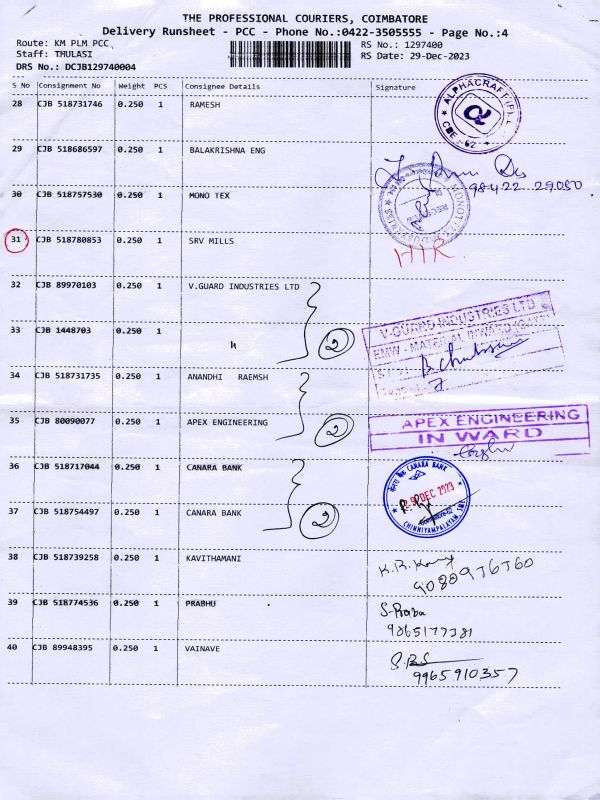 THE PROFESSIONAL COURIERS, COIMBATORE
Delivery Runsheet - PCC - Phone No.:0422-3505555 - Page No.:4
Route: KM PLM PCC
Staff: THULASI
DRS No.: DCJB129740004
RS No.: 1297400
RS Date: 29-Dec-2023
S No Consignment No Weight PCS Consignee Details Signature
28 CJB 518731746 0.250 1 RAMESH
ALPHACRAFT (P) L
CBE - 62
29 CJB 518686597 0.250 1 BALAKRISHNA ENG
98422 29050
30 CJB 518757530 0.250 1 MONO TEX
31 CJB 518780853 0.250 1 SRV MILLS
HTR.
32 CJB 89970103 0.250 1 V.GUARD INDUSTRIES LTD
33 CJB 1448703 0.250 1 "
2
V-GUARD INDUSTRIES LTD
EMW - MATERIAL INWARD
34 CJB 518731735 0.250 1 ANANDHI RAEMSH
35 CJB 80090077 0.250 1 APEX ENGINEERING
2
APEX ENGINEERING
IN WARD
36 CJB 518717044 0.250 1 CANARA BANK
37 CJB 518754497 0.250 1 CANARA BANK
2
CANARA BANK
29 DEC 2023
CHINNIYAMPALAYAM
38 CJB 518739258 0.250 1 KAVITHAMANI
9080976760
39 CJB 518774536 0.250 1 PRABHU
S-Praba
9865177381
40 CJB 89948395 0.250 1 VAINAVE
9965910357